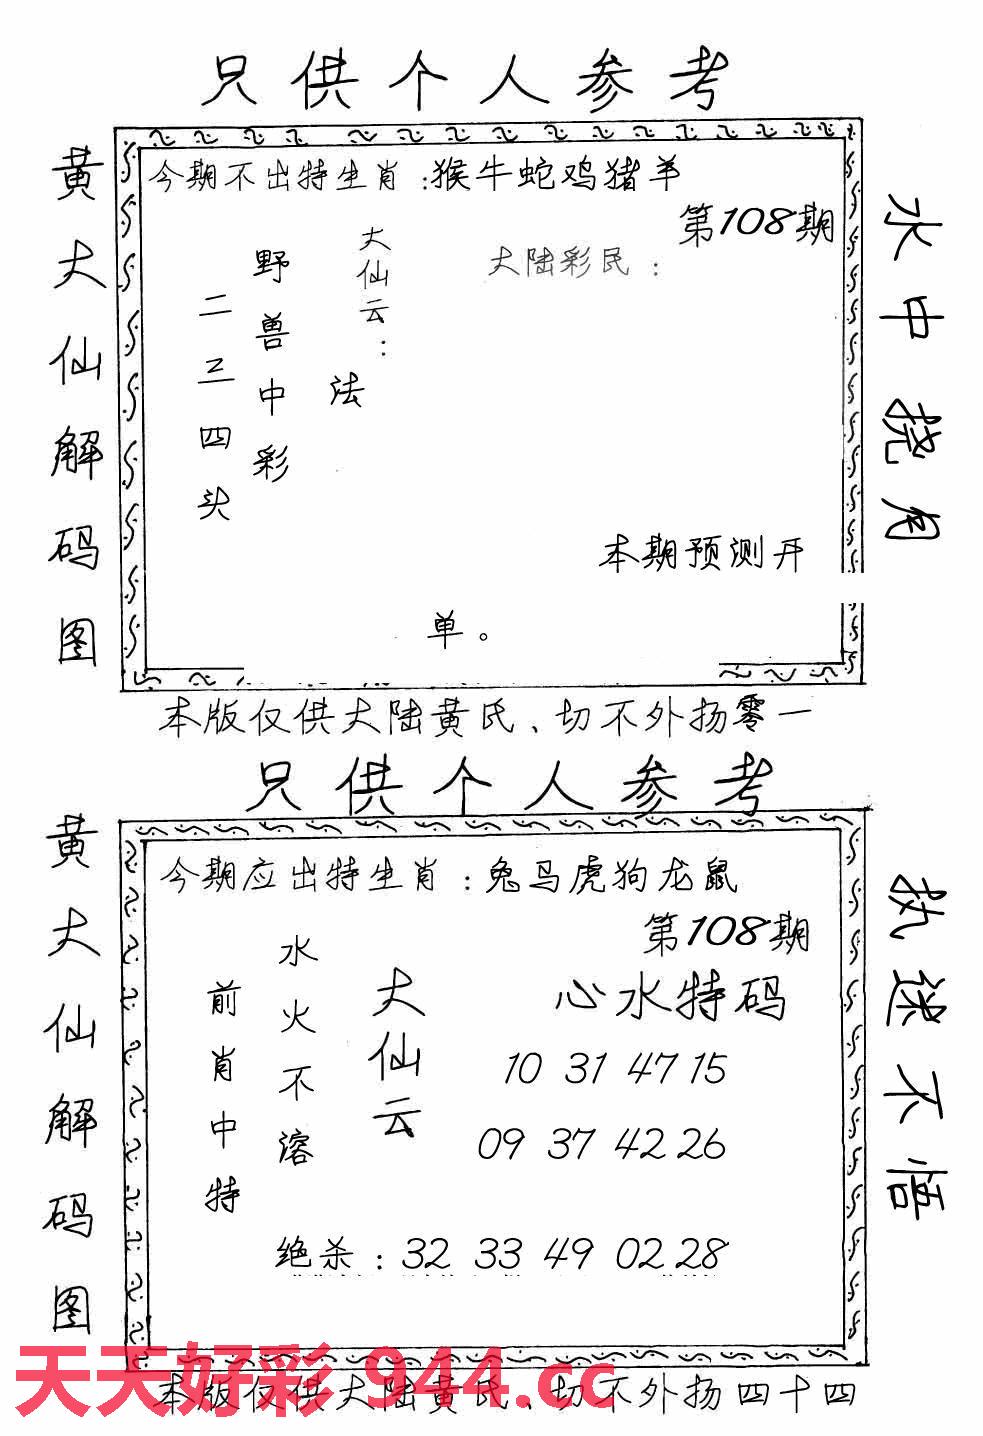 只供个人参考
黄大仙解码图
今期不出特生肖:猴牛蛇鸡猪羊
第108期
大陆彩民:
大仙云:
法
野兽中彩
二三四头
本期预测开
单。
水中捞月
本版仅供大陆黄氏、切不外扬零一
只供个人参考
黄大仙解码图
今期应出特生肖:兔马虎狗龙鼠
第108期
心水特码
大仙云
水火不溶
前肖中特
10 31 47 15
09 37 42 26
绝杀:32 33 49 02 28
执迷不悟
天天好彩 944.cc
本版仅供大陆黄氏、切不外扬四十四